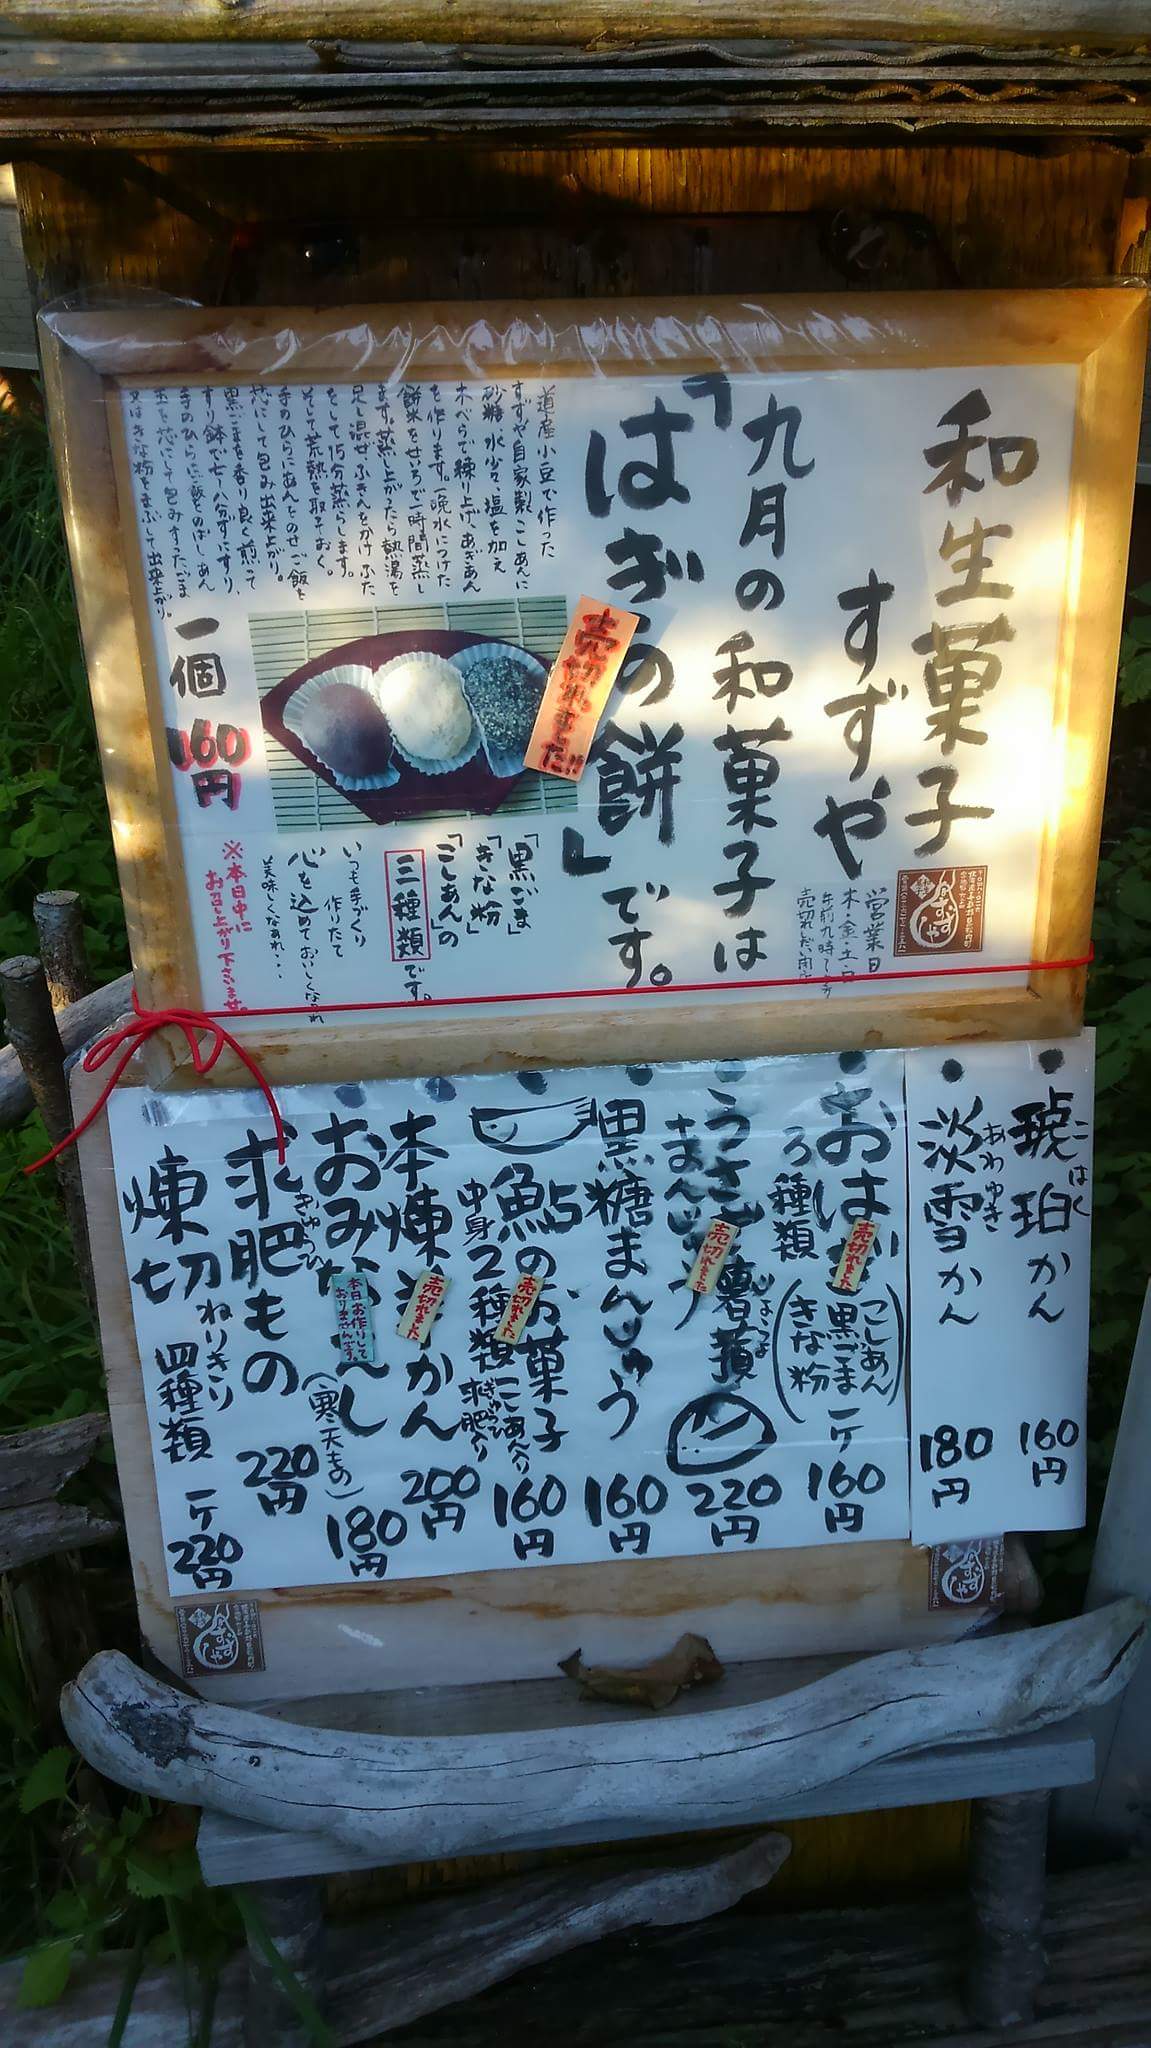 和生菓子
すずや
営業日
木・金・土・日
売切れしだい閉店
九月の和菓子は
「はぎの餅」です。
売切れました!!
道産小豆で作った
すずや自家製こしあんに
砂糖、水少々、塩を加え
木べらで練り上げ、あぎあん
を作ります。一晩水につけた
餅米をせいろで一時間蒸し
ます。蒸し上がったら熱湯を
足し混ぜ、ふきんをかけ、ふた
をして15分蒸らします。
そして荒熱を取っておく。
手のひらにあんをのせ、ご飯を
芯にして包み出来上がり。
黒ごまを香り良く煎って
すり鉢で七〜八分ずりにすり、
手のひらにご飯をのばし、あん
玉を芯にして包み、すったごま
又はきな粉をまぶして出来上がり。
一個
160円
「黒ごま」
「きな粉」
「こしあん」の
三種類です。
いつも手づくり
作りたて
心を込めておいしくなあれ
美味しくなあれ・・・
※本日中に
お召し上がり下さいませ。
琥珀かん
こはく
160円
淡雪かん
あわゆき
180円
おはぎ
売切れました
3種類
(こしあん
黒ごま
きな粉)
一ケ
160円
うさぎ薯蕷
じょうよ
まんじゅう
売切れました
220円
黒糖まんじゅう
160円
鮎のお菓子
売切れました
中身2種類
こしあん入り
求肥入り
ぎゅうひ
160円
本煉羊かん
売切れました
200円
おみなえし
本日お作りして
おりませんです。
(寒天もの)
180円
求肥もの
ぎゅうひ
220円
煉切
ねりきり
四種類
一ケ
220円
すずや
すずや
すずや